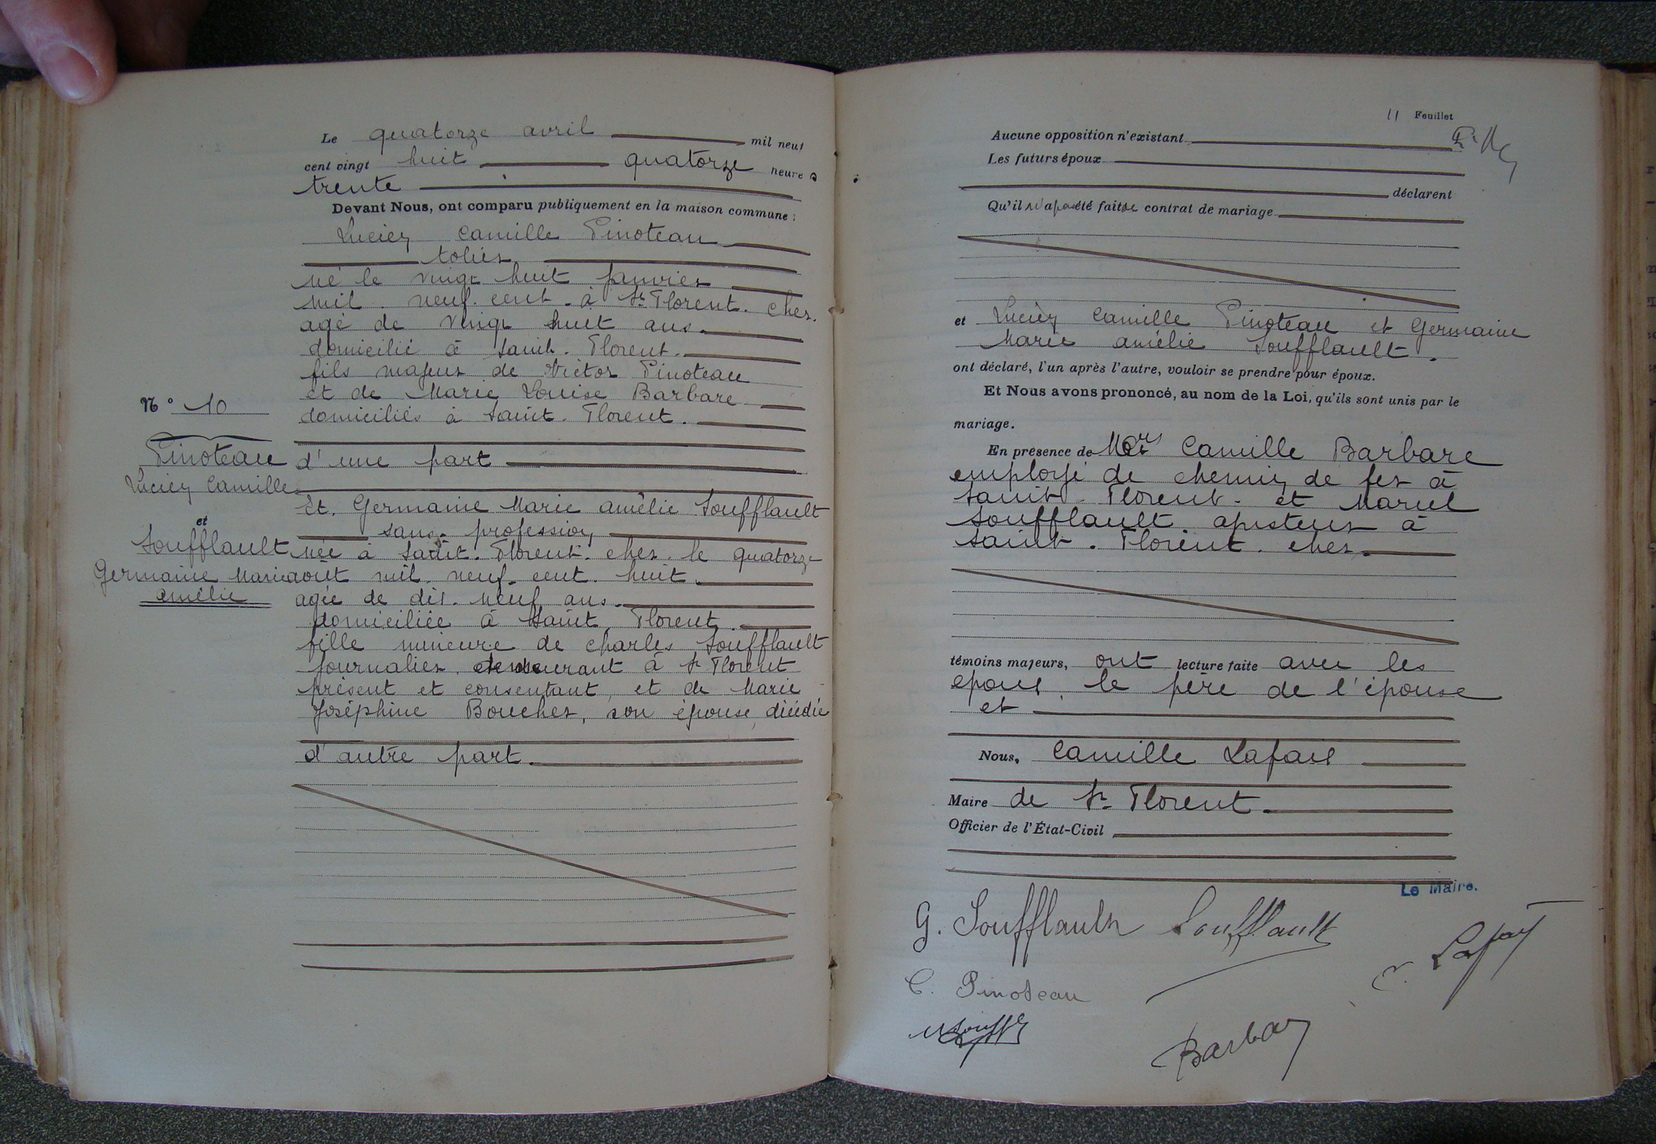 Le quatorze avril mil neuf
cent vingt huit quatorze heures
trente
Devant Nous, ont comparu publiquement en la maison commune :
Lucien Camille Pinoteau
tolier
né le vingt huit janvier
mil neuf cent à St Florent. cher.
agé de vingt huit ans.
domicilié à Saint. Florent.
fils majeur de Victor Pinoteau
et de Marie Louise Barbare
domiciliés à Saint. Florent.
N° 10
Pinoteau
Lucien Camille
et
Soufflault
Germaine Marie
amélie
d'une part
et. Germaine Marie amélie Soufflault
sans profession
née à Saint. Florent. cher. le quatorze
août mil. neuf. cent. huit.
agée de dix. neuf ans.
domiciliée à Saint Florent.
fille mineure de Charles Soufflault
journalier, demeurant à St Florent
présent et consentant, et de Marie
Joséphine Boucher, son épouse, décédée
d'autre part.
11 Feuillet
Aucune opposition n'existant
Les futurs époux
déclarent
Qu'il n'a pas été fait de contrat de mariage
et Lucien Camille Pinoteau et Germaine
Marie amélie Soufflault.
ont déclaré, l'un après l'autre, vouloir se prendre pour époux.
Et Nous avons prononcé, au nom de la Loi, qu'ils sont unis par le
mariage.
En présence de Mrs Camille Barbare
employé de chemin de fer à
Saint. Florent. et Marcel
Soufflault. ajusteur à
Saint. Florent. cher.
témoins majeurs, ont lecture faite avec les
époux, le père de l'épouse
et
Nous, Camille Lafaix
Maire de St Florent.
Officier de l'État-Civil
Le Maire.
G. Soufflault Soufflault
C. Lafaix
C. Pinoteau
Barbare